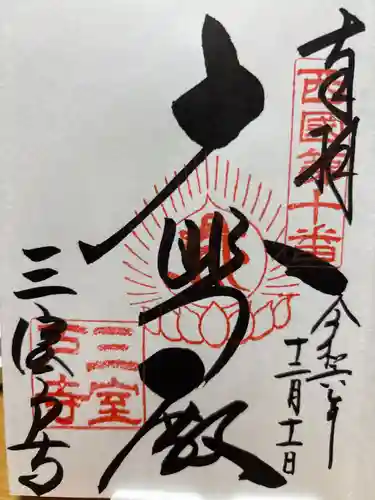 奉拝
西國第十番
令和六年
十二月十一日
大悲殿
三室戸寺
三室戸寺